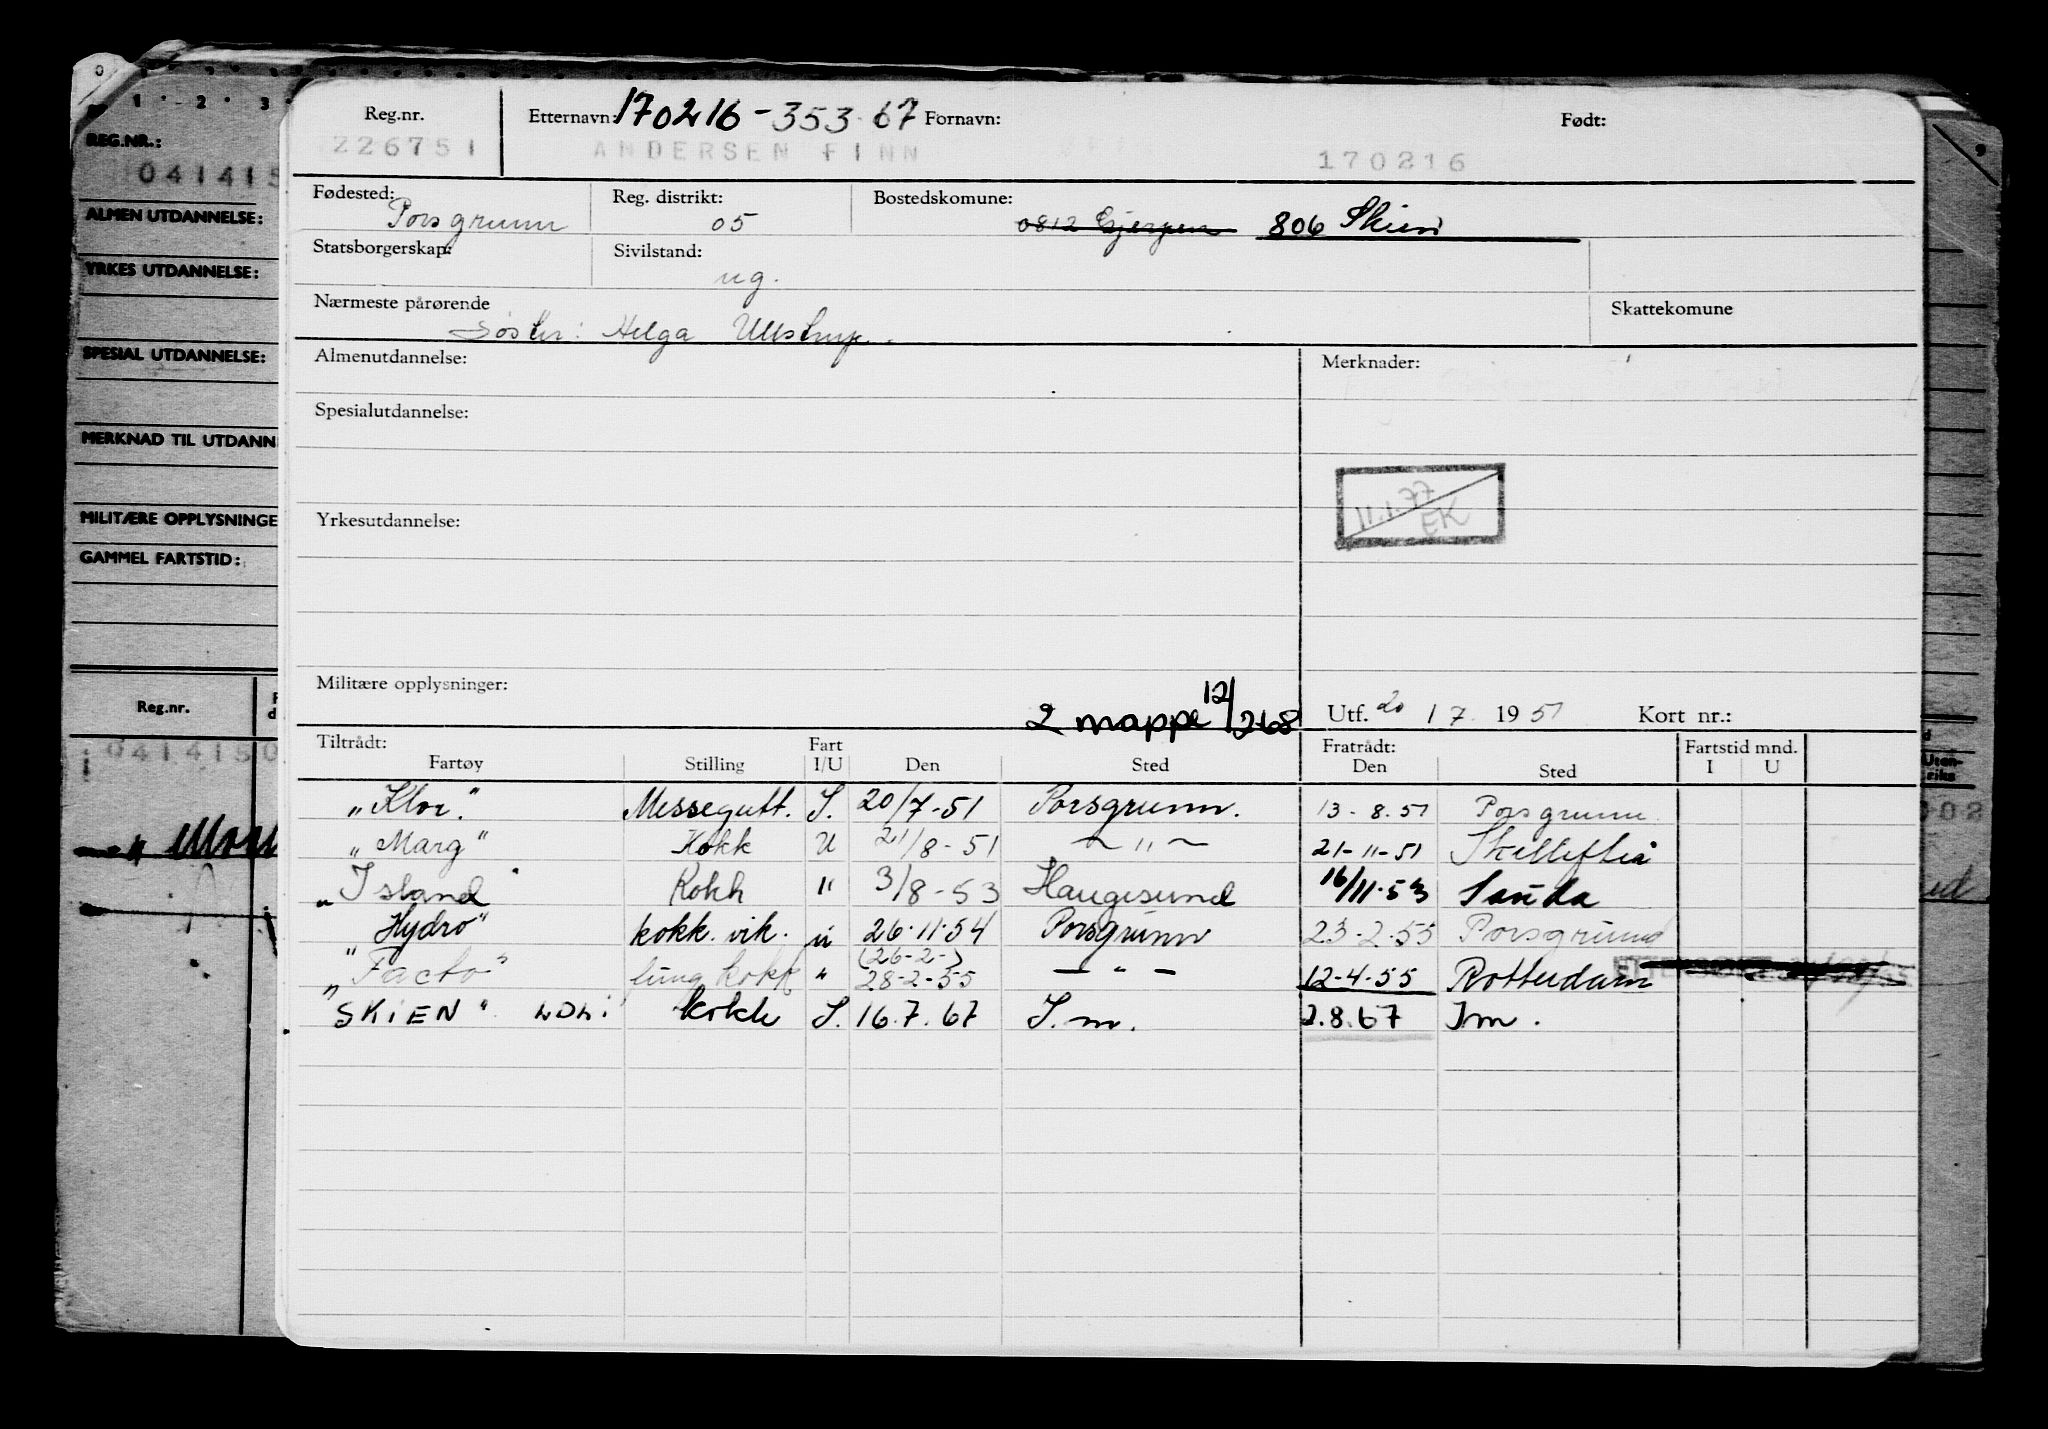 0 1 2 3
REG.NR.:
041415
ALMEN UTDANNELSE:
YRKES UTDANNELSE:
SPESIAL UTDANNELSE:
MERKNAD TIL UTDANN
MILITÆRE OPPLYSNINGE
GAMMEL FARTSTID:
Reg.nr.
0414150
Reg.nr. Etternavn: 170216-353 67 Fornavn: Født:
226751 ANDERSEN FINN 170216
Fødested: Reg. distrikt: Bostedskomune:
Porsgrunn 05 0812 Gjerpen 806 Skien
Statsborgerskap: Sivilstand:
ug.
Nærmeste pårørende Skattekomune
Søster: Helga Ullstrup.
Almenutdannelse: Merknader:
Spesialutdannelse:
11.1.77
EK
Yrkesutdannelse:
Militære opplysninger:
2 mappe 12/2 68 Utf. 20 / 7. 19 51 Kort nr.:
Tiltrådt: Fart Fratrådt: Fartstid mnd.
Fartøy Stilling I/U Den Sted Den Sted I U
"Klor." Messegutt. I. 20/7-51 Porsgrunn. 13-8.51 Porsgrunn.
"Marg" Kokk U 21/8-51 — " — 21-11-51 Skellefteå
"Island" Kokk " 3/8-53 Haugesund 16/11-53 Sauda
"Hydro" kokk. vik. u 26.11.54 Porsgrunn 23-2-55 Porsgrunn
(26-2-)
"Facto" fung kokk " 28-2-55 — " — 12-4-55 Rotterdam
"SKIEN" LDLI kokk I. 16.7.67 I.m. 2.8.67 Im.